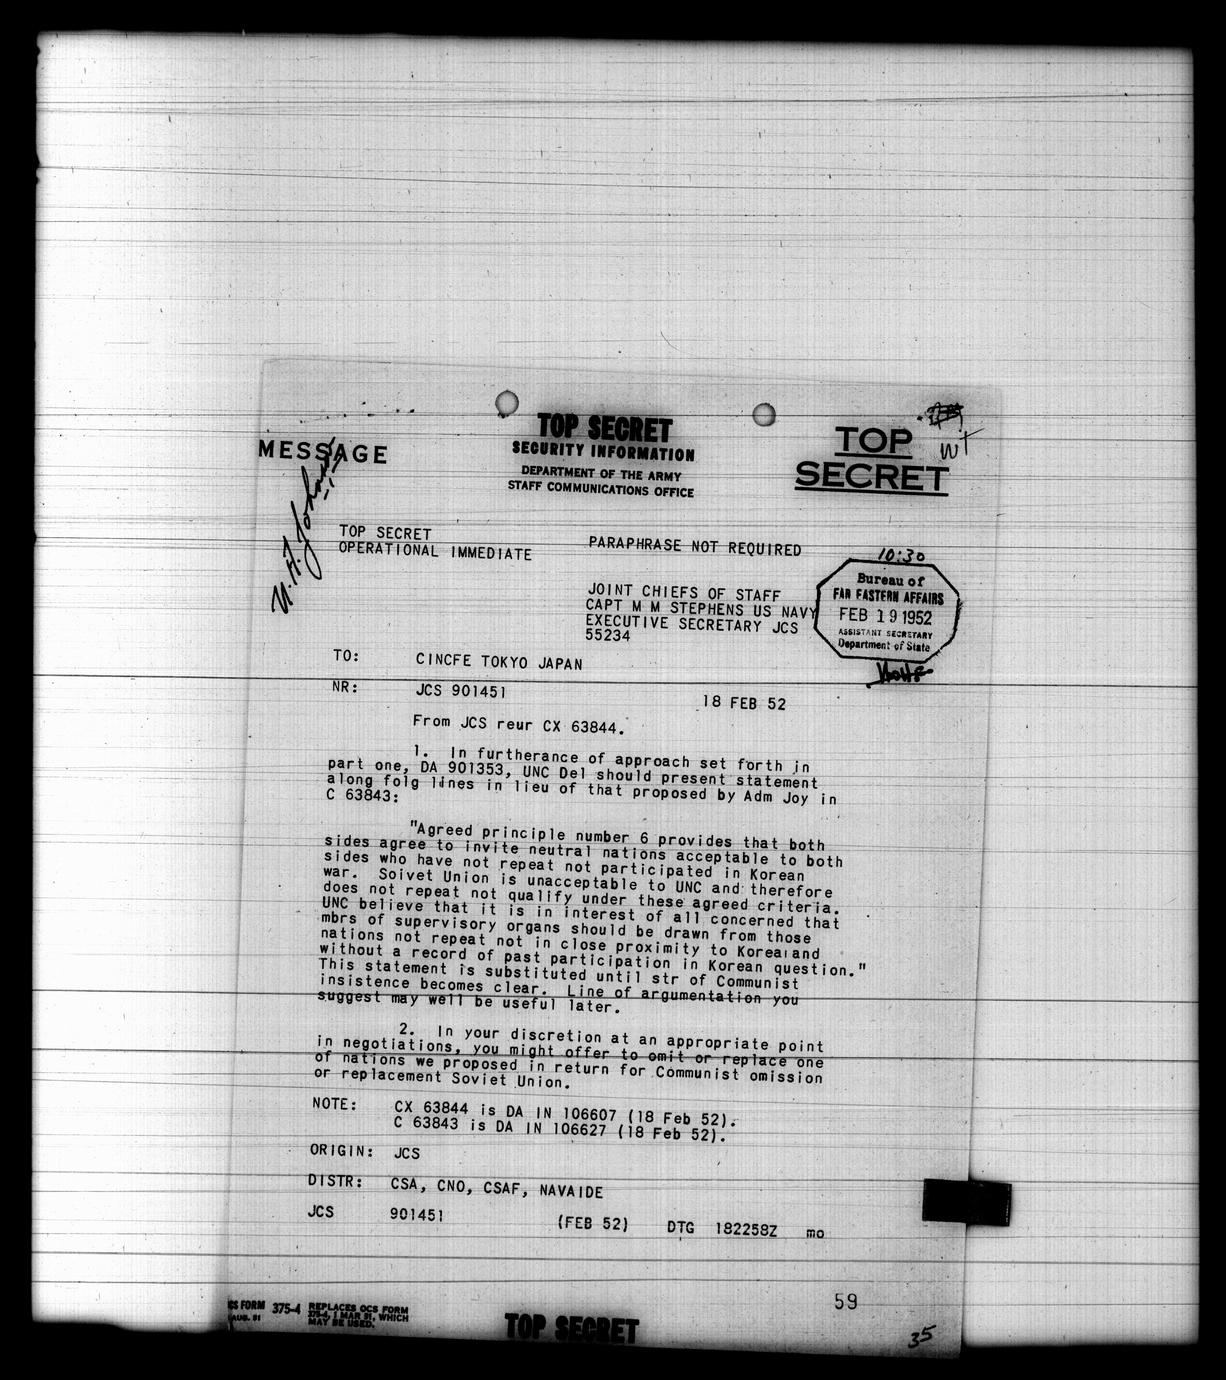 TOP SECRET
SECURITY INFORMATION
DEPARTMENT OF THE ARMY
STAFF COMMUNICATIONS OFFICE
MESSAGE
TOP
SECRET
WT
U. A. Johnson
TOP SECRET
OPERATIONAL IMMEDIATE
PARAPHRASE NOT REQUIRED
10:30
Bureau of
FAR EASTERN AFFAIRS
FEB 19 1952
ASSISTANT SECRETARY
Department of State
JOINT CHIEFS OF STAFF
CAPT M M STEPHENS US NAVY
EXECUTIVE SECRETARY JCS
55234
TO: CINCFE TOKYO JAPAN
NR: JCS 901451 18 FEB 52
From JCS reur CX 63844.
1. In furtherance of approach set forth in
part one, DA 901353, UNC Del should present statement
along folg lines in lieu of that proposed by Adm Joy in
C 63843:
"Agreed principle number 6 provides that both
sides agree to invite neutral nations acceptable to both
sides who have not repeat not participated in Korean
war. Soivet Union is unacceptable to UNC and therefore
does not repeat not qualify under these agreed criteria.
UNC believe that it is in interest of all concerned that
mbrs of supervisory organs should be drawn from those
nations not repeat not in close proximity to Korea and
without a record of past participation in Korean question."
This statement is substituted until str of Communist
insistence becomes clear. Line of argumentation you
suggest may well be useful later.
2. In your discretion at an appropriate point
in negotiations, you might offer to omit or replace one
of nations we proposed in return for Communist omission
or replacement Soviet Union.
NOTE: CX 63844 is DA IN 106607 (18 Feb 52).
C 63843 is DA IN 106627 (18 Feb 52).
ORIGIN: JCS
DISTR: CSA, CNO, CSAF, NAVAIDE
JCS 901451 (FEB 52) DTG 182258Z mo
59
35
CS FORM 375-4 REPLACES OCS FORM
AUG. 51 375-4, 1 MAR 51, WHICH
MAY BE USED.
TOP SECRET